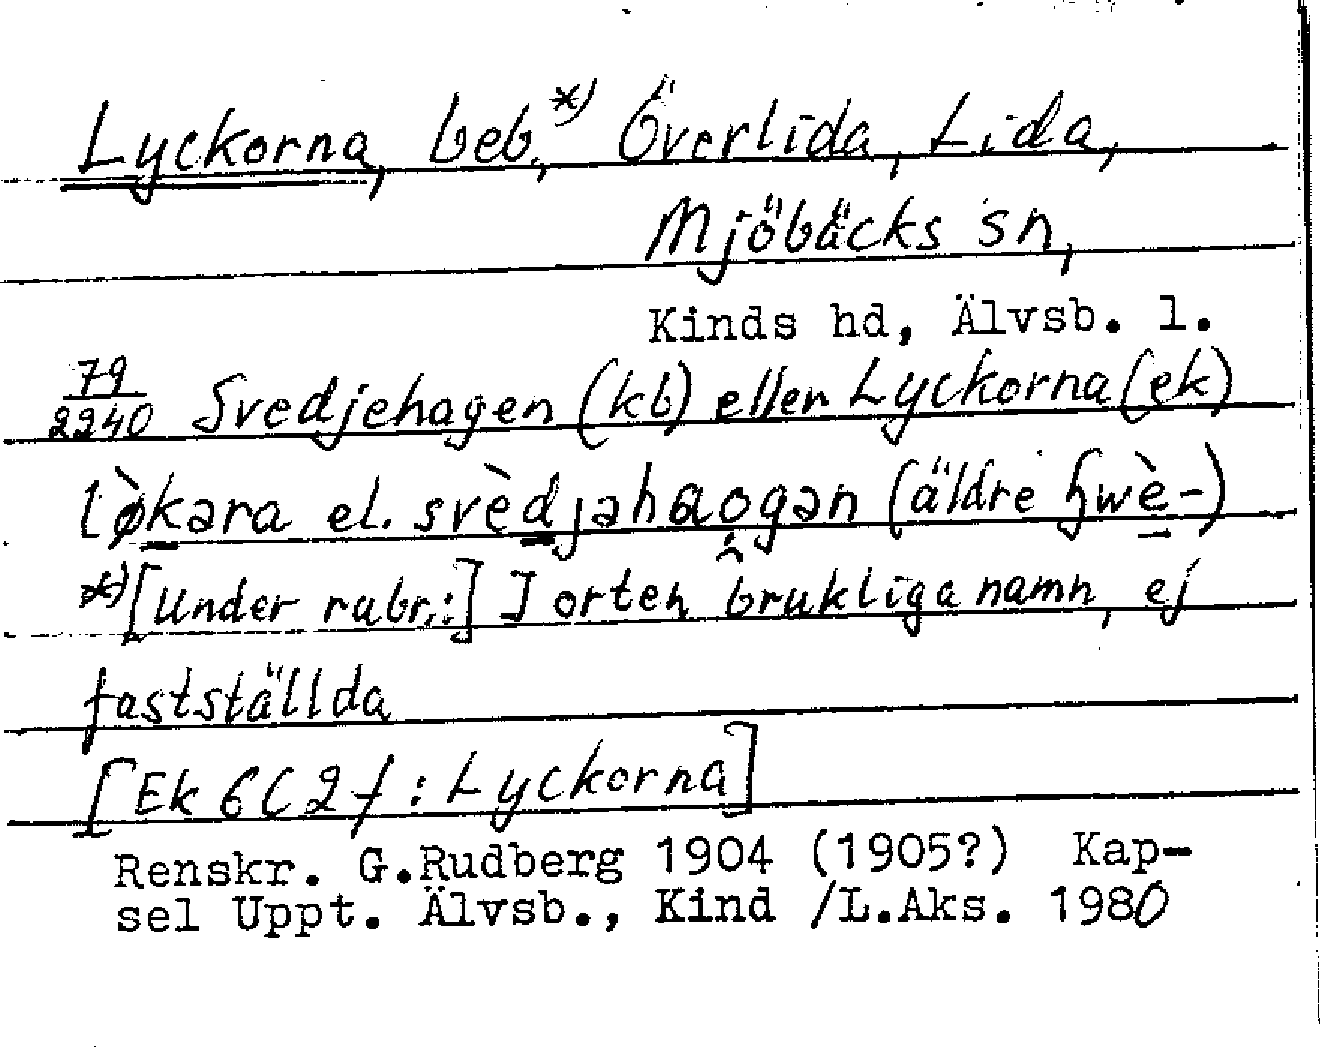 Lyckorna, beb.,*) Överlida, Lida,
Mjöbäcks sn,
Kinds hd, Älvsb. l.
79/2240 Svedjehagen (kb) eller Lyckorna (ek)
lø̀kəra el. svèdjəhaogən (äldre hwè-)
*) [Under rubr.:] I orten brukliga namn, ej
fastställda
[Ek 6C2f: Lyckorna]
Renskr. G.Rudberg 1904 (1905?) Kap-
sel Uppt. Älvsb., Kind /L.Aks. 1980